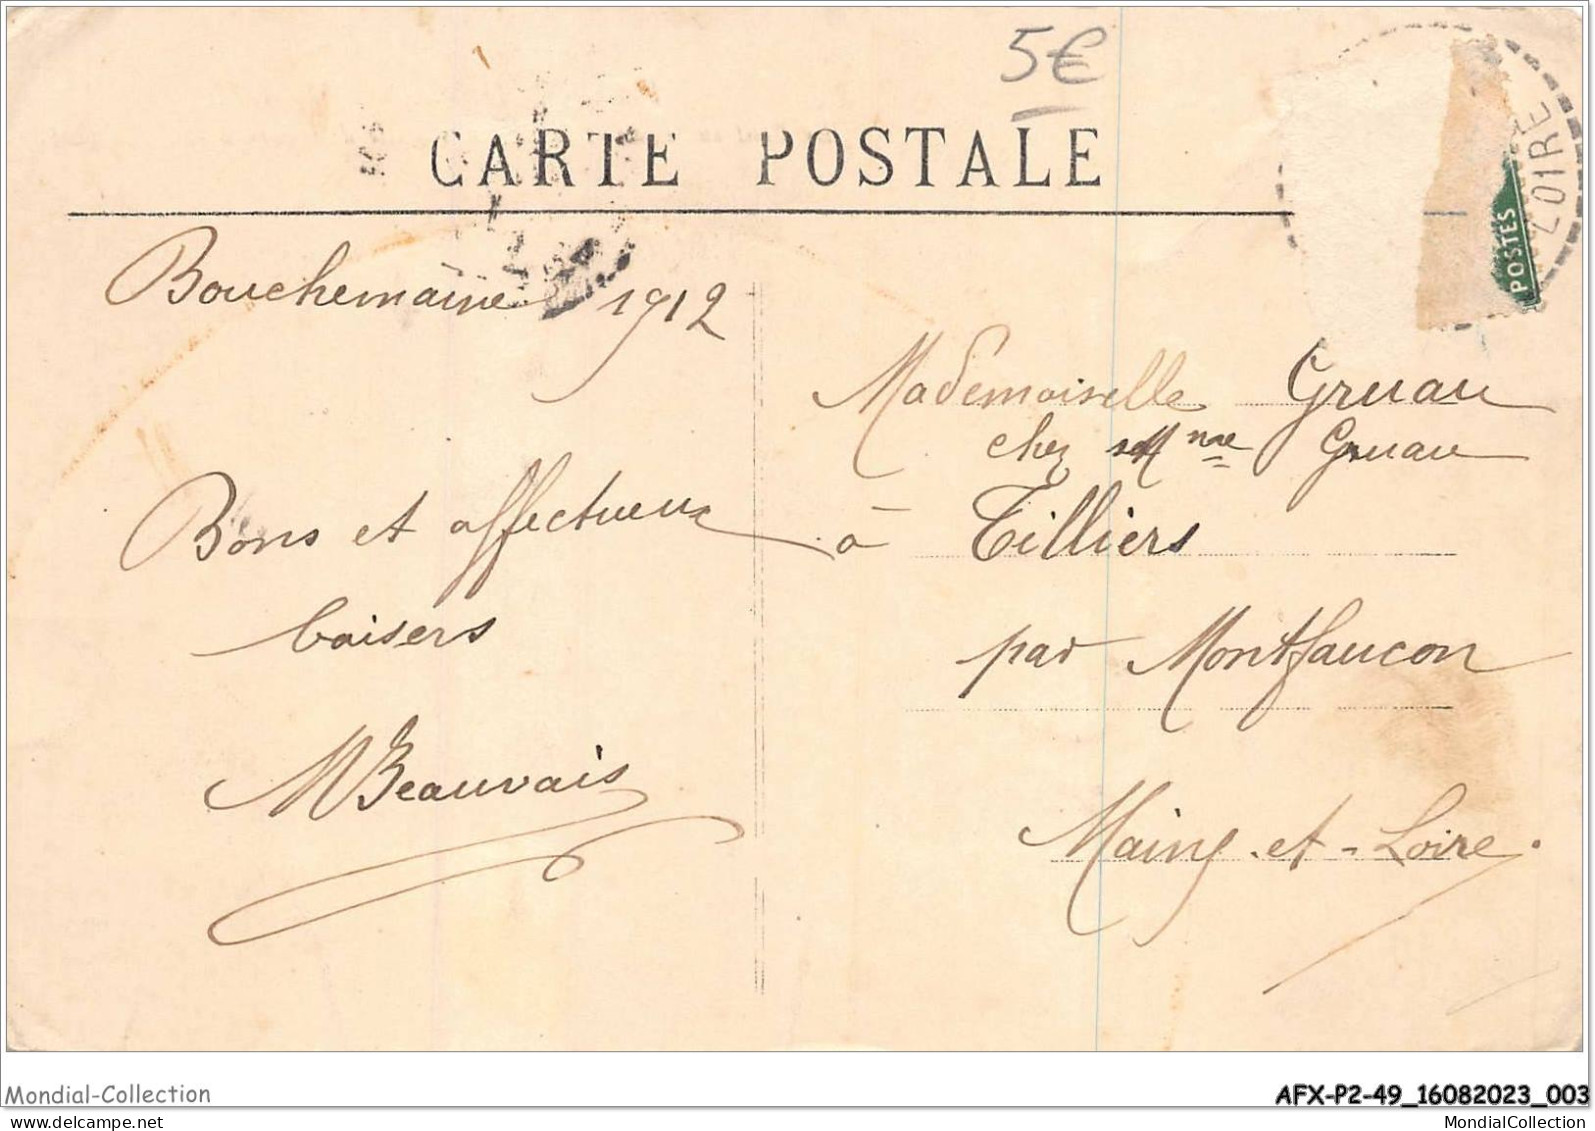 5€
CARTE POSTALE
LOIRE
POSTES
Bouchemaine 1912
Bons et affectueux
baisers
M Beauvais
Mademoiselle Gruau
chez Mme Gruau
à Tilliers
par Montfaucon
Maine-et-Loire.
Mondial-Collection
AFX-P2-49_16082023_003
MondialCollection